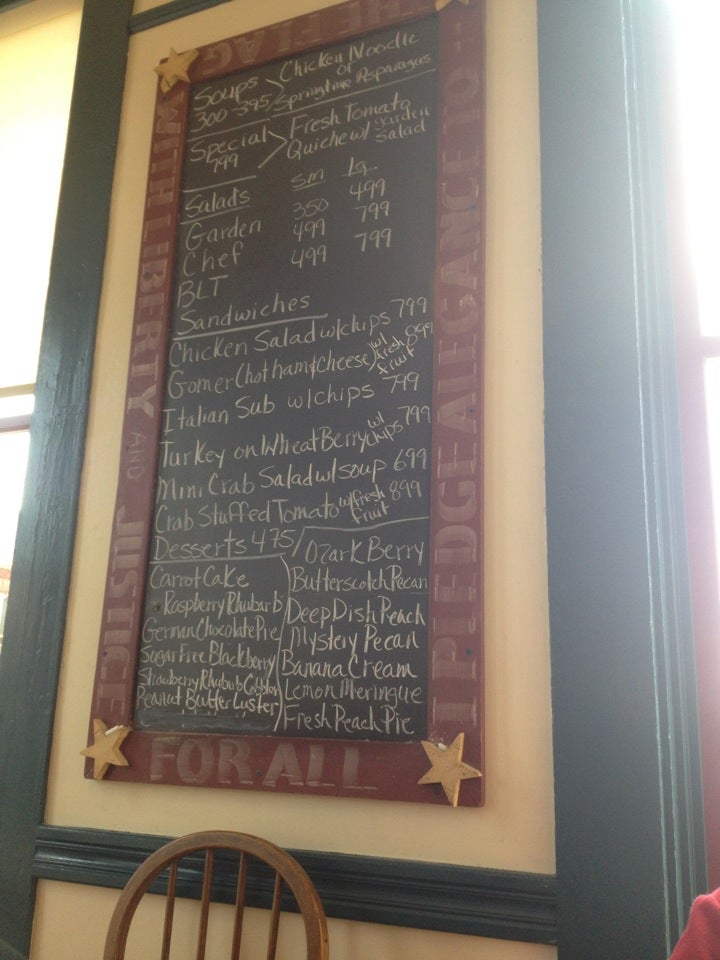 THE FLAG
Soups Chicken Noodle
or
300-395 Springtime Asparagus
Special Fresh Tomato
799 Quiche w/ garden
Salad
Sm Lg
Salads
Garden 350 499
Chef 499 799
BLT 499 799
Sandwiches
Chicken Salad w/chips 799
Gomer Chot ham & cheese w/ fresh fruit 899
Italian Sub w/chips 799
Turkey on Wheat Berry w/ chips 799
Mini Crab Salad w/soup 699
Crab Stuffed Tomato w/fresh fruit 899
Desserts 475
Carrot Cake
Raspberry Rhubarb
German Chocolate Pie
Sugar Free Blackberry
Strawberry Rhubarb Cobbler
Peanut Butter Luster
Ozark Berry
Butterscotch Pecan
Deep Dish Peach
Mystery Pecan
Banana Cream
Lemon Meringue
Fresh Peach Pie
I PLEDGE ALEGANCE TO
WITH LIBERTY AND JUSTICE
FOR ALL